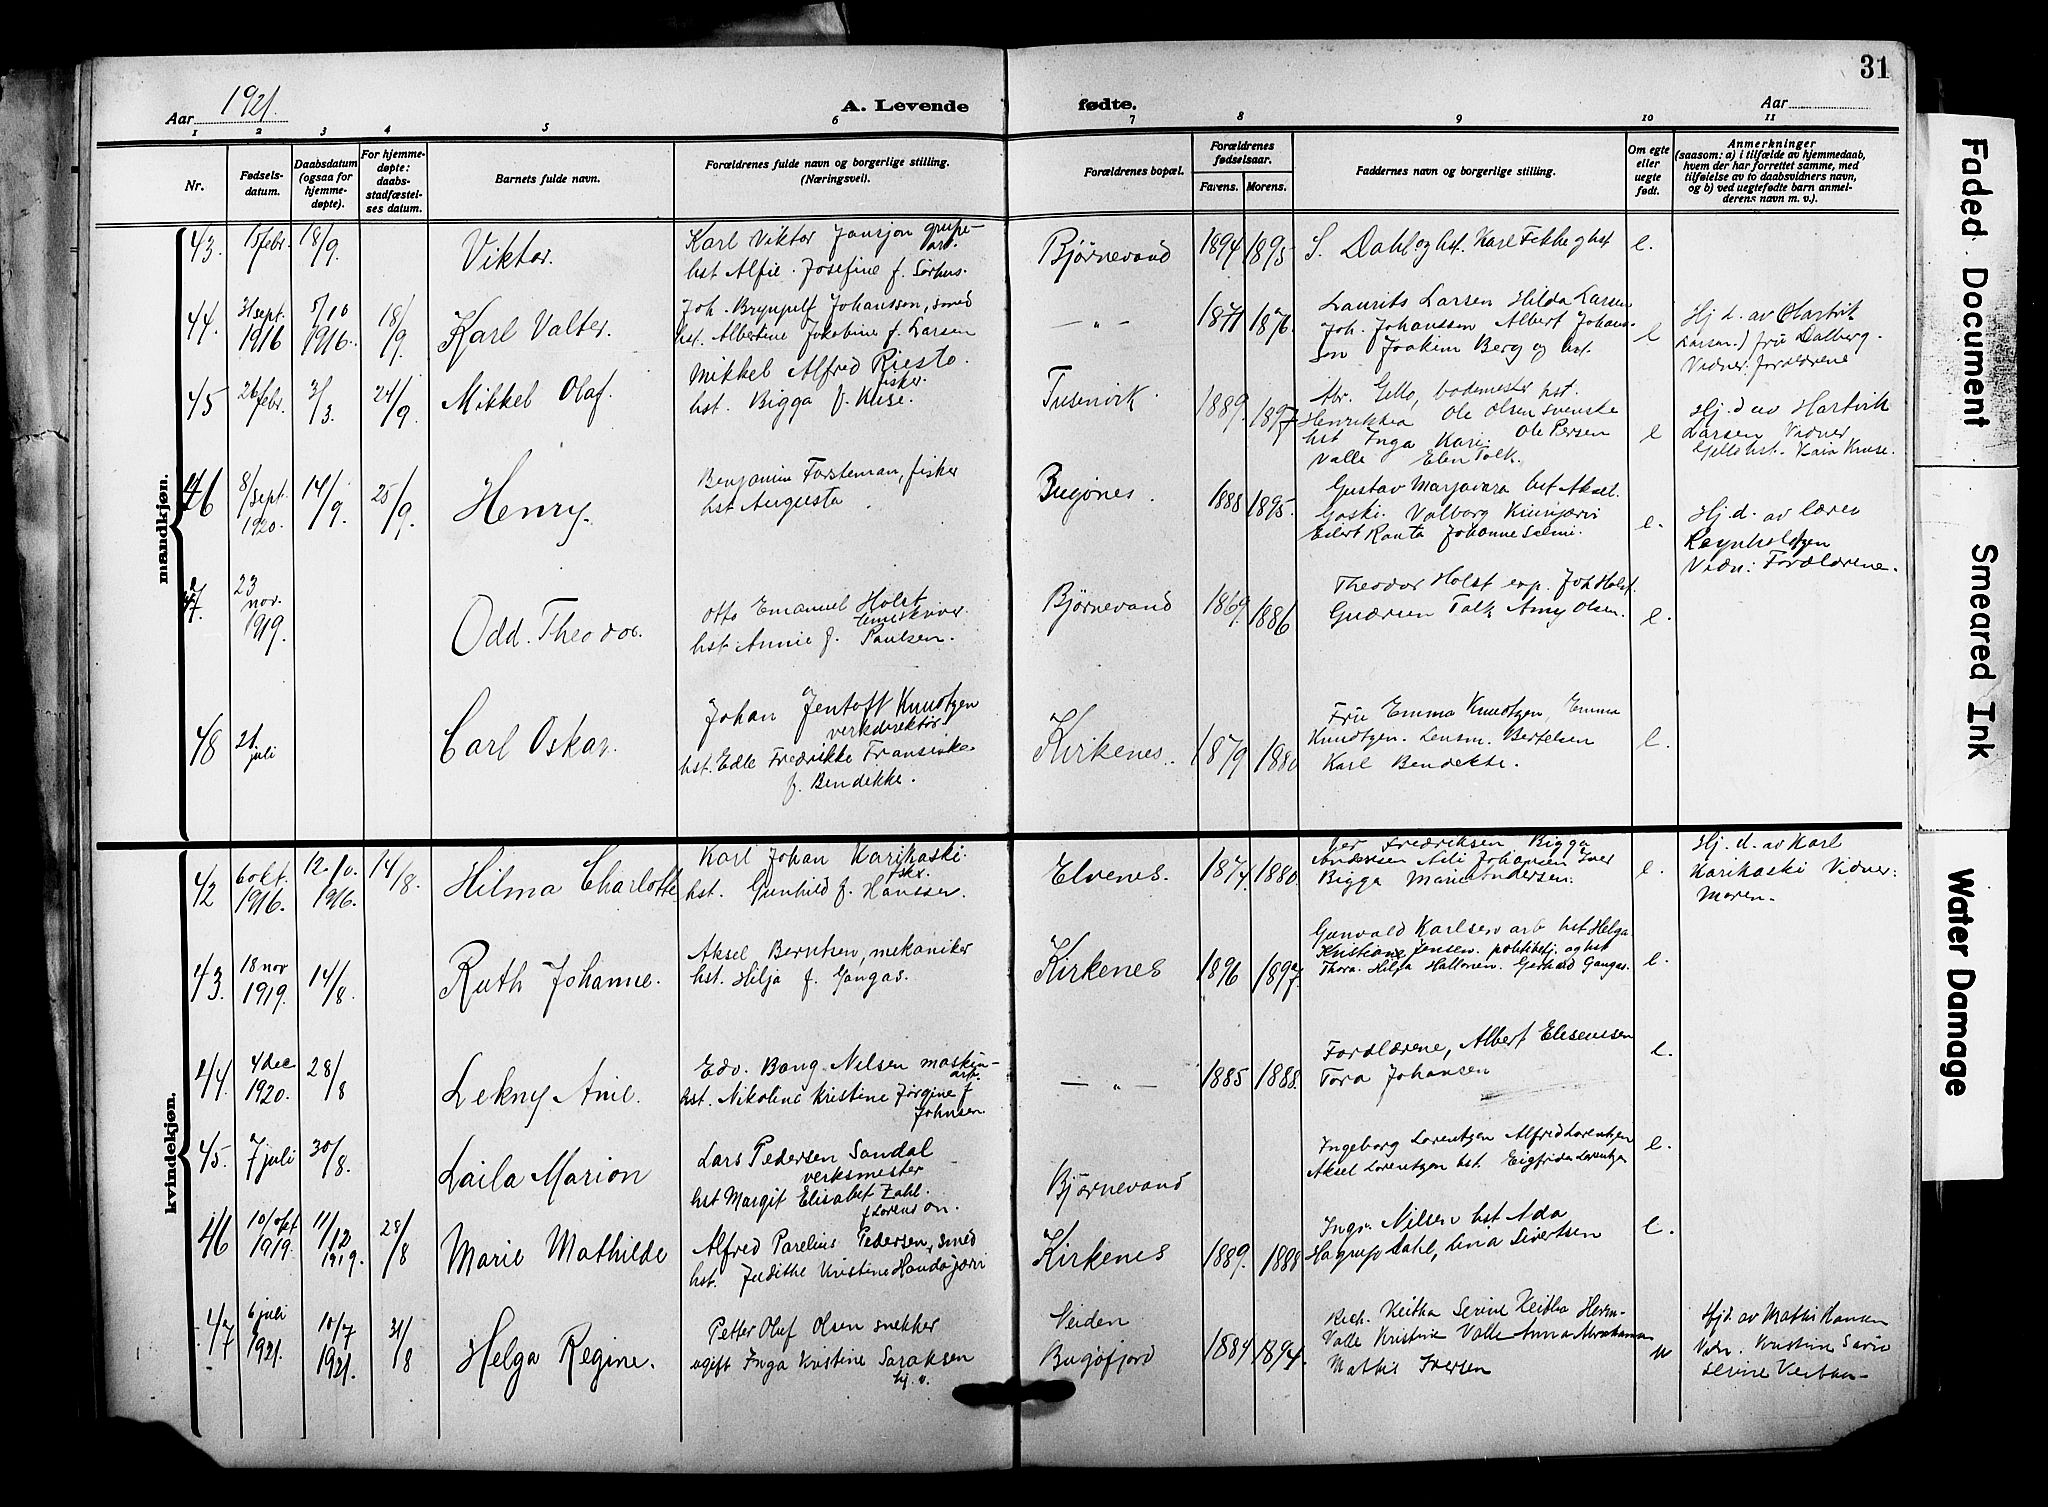 31
Aar 1921.
A. Levende fødte.
Aar
1 2 3 4 5 6 7 8 9 10 11
Nr.
Fødsels-
datum.
Daabsdatum
(ogsaa for
hjemme-
døpte).
For hjemme-
døpte:
daabs-
stadfæstel-
ses datum.
Barnets fulde navn.
Forældrenes fulde navn og borgerlige stilling.
(Næringsvei).
Forældrenes bopæl.
Forældrenes
fødselsaar.
Farens. Morens.
Faddernes navn og borgerlige stilling.
Om egte
eller
uegte
født.
Anmerkninger
(saasom: a) i tilfælde av hjemmedaab,
hvem der har forrettet samme, med
tilføielse av to daabsvidners navn,
og b) ved uegtefødte barn anmel-
derens navn m. v.).
mandkjøn.
43. 15 febr. 18/9. Viktor.
Karl Viktor Jansjon grube-
arb.
hst Alfie Josefine f. Sørhus.
Bjørnevand 1894 1895
S. Dahl og hst. Karl g hst e.
44. sept. 1916 5/10 1916. 18/9. Karl Valter.
Joh. Johansson, smed
hst. Albertine Jakobine f. Larsen
— " — 1871 1876.
Laurits Larsen Hilda Larsen
Joh. Johanssen Albert Johans-
son Joakim Berg og hst. e
Hj. d. av Hartvik
Larsen fru Dalberg.
Vidner: forældrene
45 26 febr. 3/3. 24/9. Mikkel Olaf.
Mikkel Alfred Riesto.
fisker.
hst. Bigga f. Kruse.
1889. 1897
hst.
Henrikka Ole Olsen svenske
hst Inga Kari. Ole Persen
Valle Elen Talk. e
Hj. d av Hartvik
Larsen Vidner
hst. Kaia Kruse.
46 8/sept. 1920. 14/9. 25/9. Henry.
Benjamin Forsteman, fisker
hst Augusta.
Bugønes. 1888 1895.
Gustav Marjavara Aksel
Valborg
Eilert Ranta Johanne Salmi. e.
Hj. d. av lærer
Vidn: Forældrene.
47. 23 nov. 1919. Odd. Theodor.
Otto Emanuel Holst
hst Annie f. Paulsen.
Bjørnevand 1869. 1886
Theodor Holst Joh Holst.
Talk Amy Olsen. e.
48 21 juli Carl Oskar.
Johan Jentoft Knudtzen
verkdirektør
hst. Edle Fredrikke
f. Bendekke.
Kirkenes. 1879 1880
Fru Emma Knudtzen, Emma
Knudtzen. Lensm. Bertelsen
Karl Bendekke. e.
kvindekjøn.
42 6 okt. 1916. 12/10. 1916. 14/8. Hilma Charlotte
Karl Johan Karikaski.
hst. Gunhild f. Hanssen.
Elvenes. 1874 1880.
Fredriksen Bigga
Andersen Johansen Iver
Bigga Maria Andersen. e.
Hj. d. av Karl
Karikaski Vidner:
Moren.
43. 18 nov 1919. 14/8. Ruth Johanne.
Aksel Berntsen, mekaniker
hst. Hilja f. Gangas.
Kirkenes 1896 1897.
Gunvald Karlsen arb hst Helga
Kristiane Jensen. politibetj. og hst
Thora. Hilja Hallonen. Gerhard Gangas. e.
44. 4 dec 1920. 28/8 Lekny Anie.
Edv. Bang Nilsen maskin-
arb.
hst. Nikoline Kristine Jørgine f
Johnsen
— " — 1885 1888.
Forældrene, Albert Elisenssen
Tora Johansen e.
45. 7 juli 30/8. Laila Marion
Lars Pedersen Sandal
verksmester
hst Margit Elisabet Zahl.
f Lorens on.
Bjørnevand
Ingeborg Lorentzen Alfred Lorentzen
Aksel Lorentzen hst. Lorentzen e.
46 10/okt 1919. 11/12 1919. 28/8 Marie Mathilde
Alfred Parelius Pedersen, smed
hst. Judithe Kristine
Kirkenes 1889. 1888
Nilsen hst Ada
Hagrup Dahl, Lina Sivertsen e.
47. 6 juli 1921. 10/7 1921. 31/8 Helga Regine.
Petter Oluf Olsen snekker
ugift Inga Kristine Saraksen
Neiden
Bugøfjord 1884 1894.
Rich. Keitha Serine Keitha Herm-
Valle Kristine Valle Anna
Mathis Iversen u
Hjd. av Mathis Hansen
Vidn. Kristine
Serine
Faded Document
Smeared Ink
Water Damage